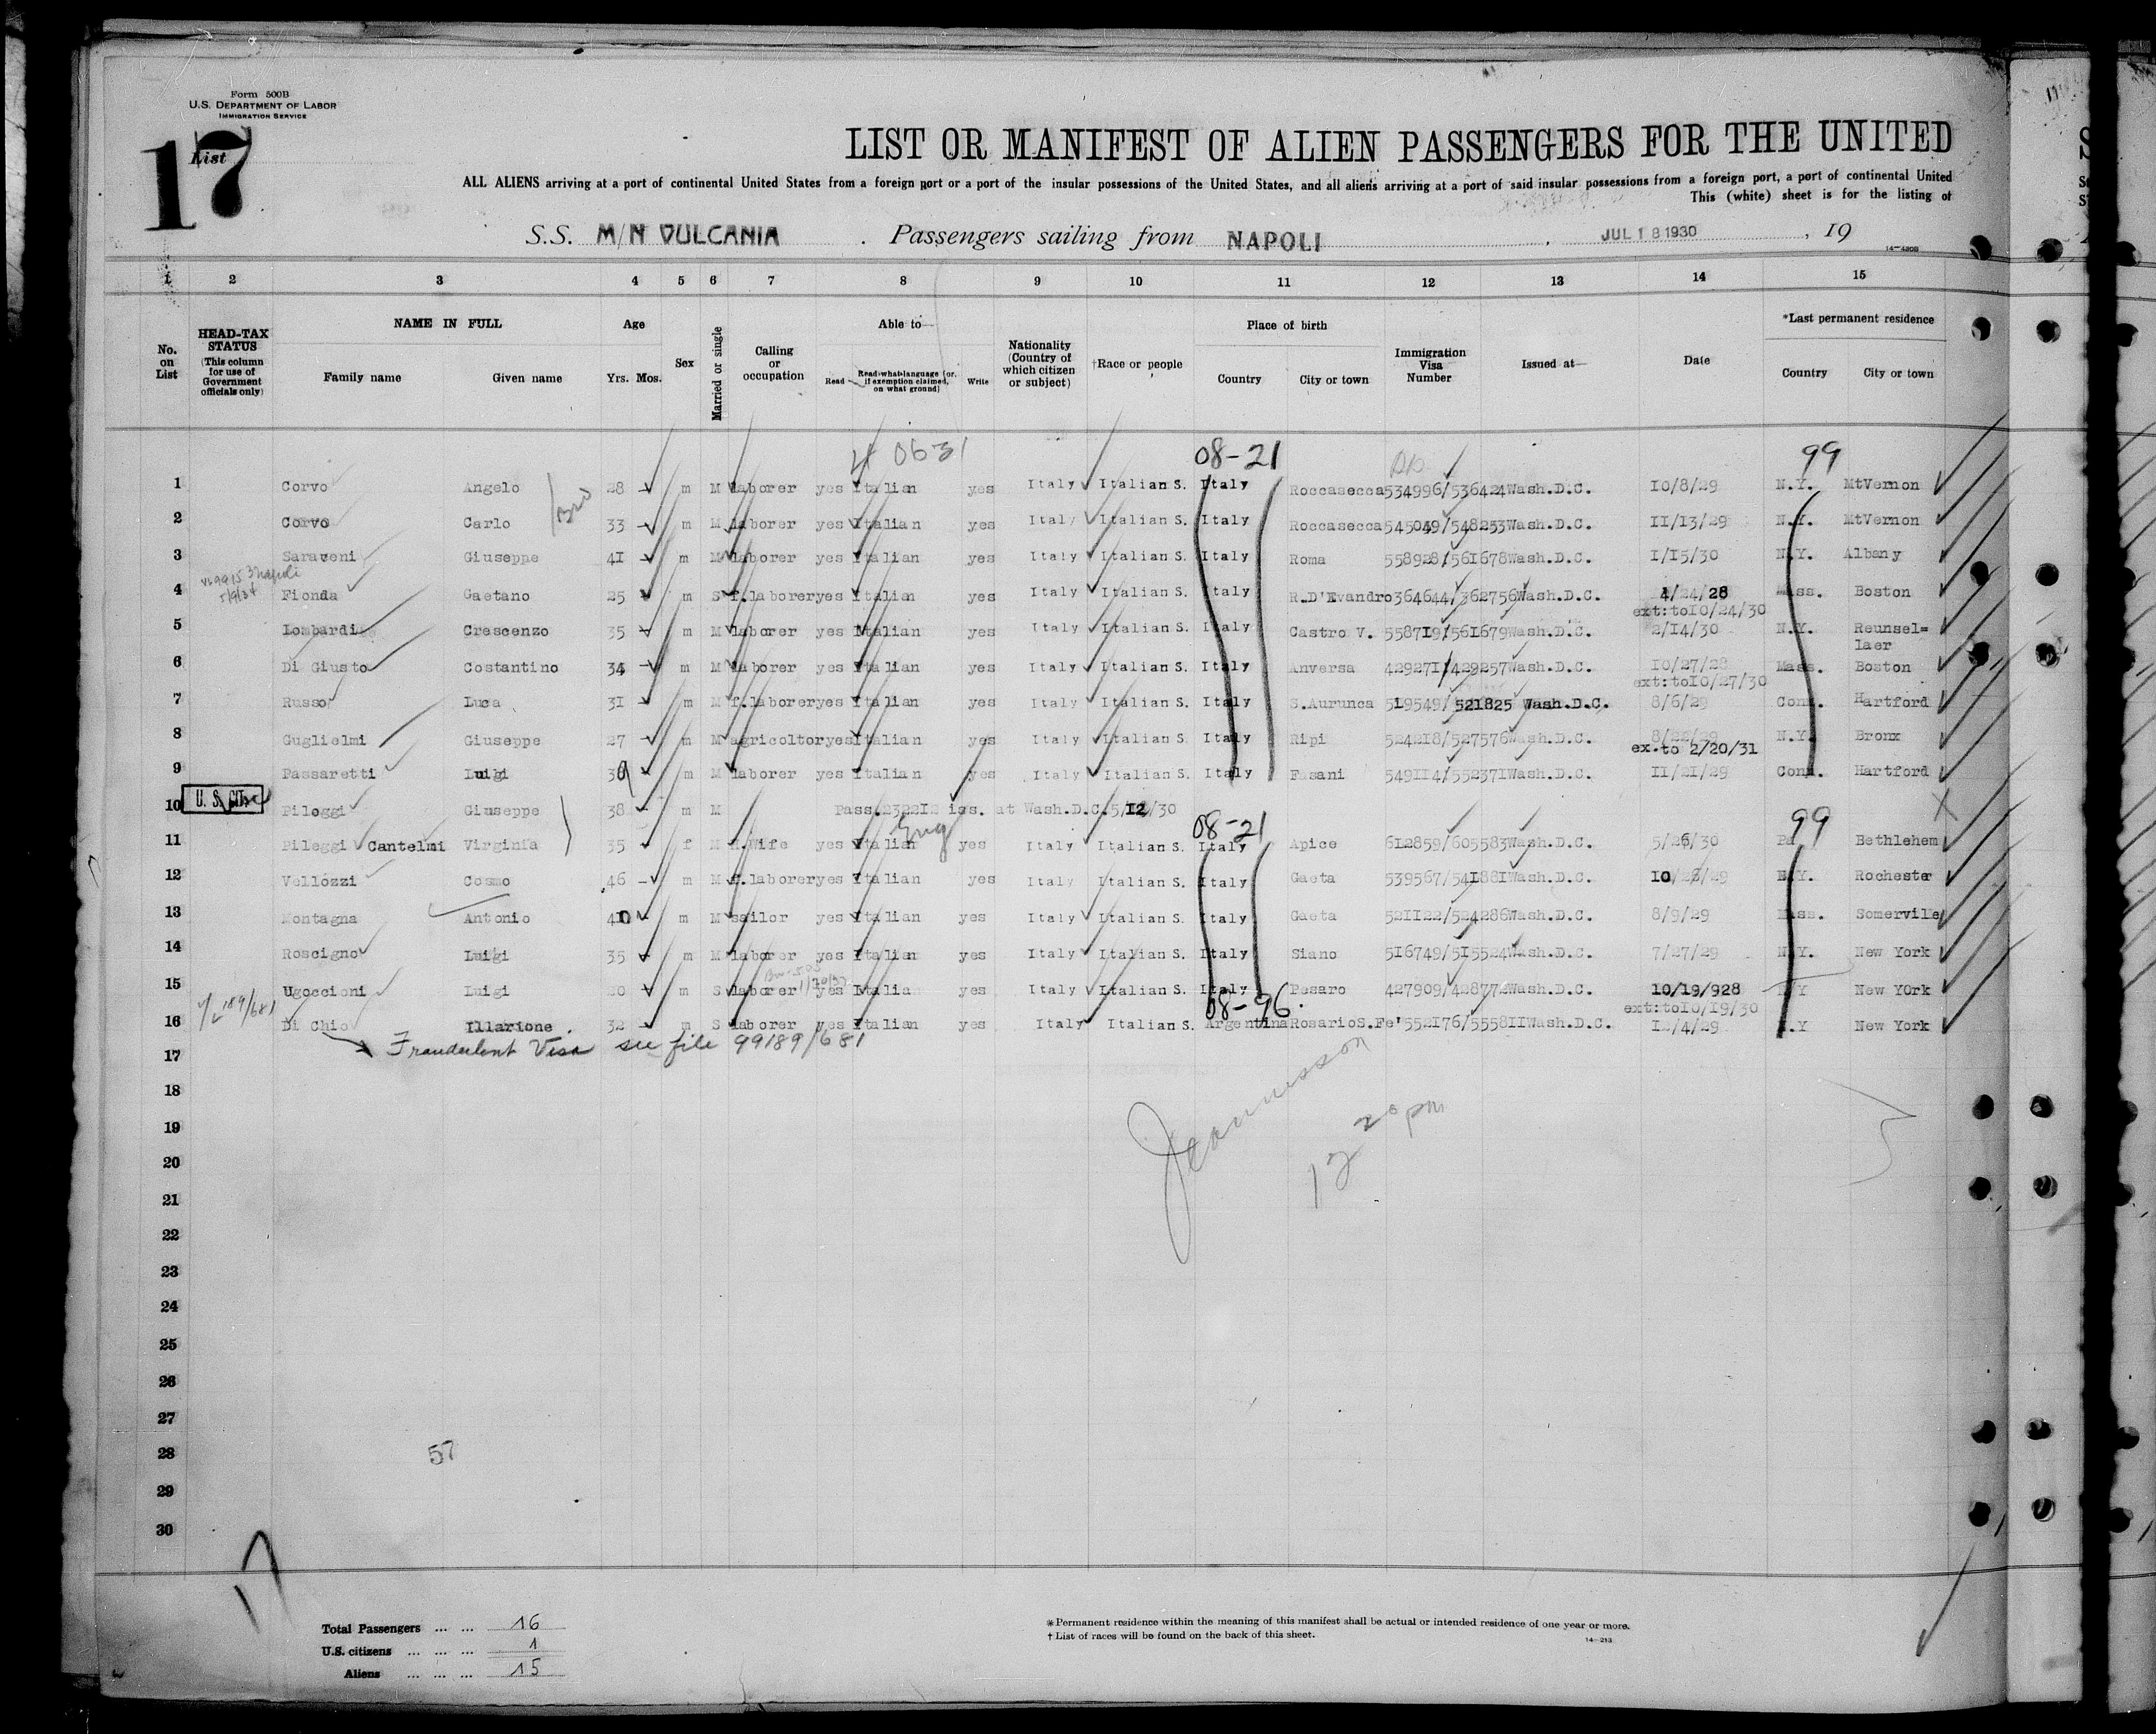 Form 500B
U.S. DEPARTMENT OF LABOR
IMMIGRATION SERVICE
List 17
LIST OR MANIFEST OF ALIEN PASSENGERS FOR THE UNITED
ALL ALIENS arriving at a port of continental United States from a foreign port or a port of the insular possessions of the United States, and all aliens arriving at a port of said insular possessions from a foreign port, a port of continental United
This (white) sheet is for the listing of
S.S. M/N VULCANIA . Passengers sailing from NAPOLI , JUL 18 1930 , 19
14-430B
1 2 3 4 5 6 7 8 9 10 11 12 13 14 15
No. on List
HEAD-TAX STATUS (This column for use of Government officials only)
NAME IN FULL Family name Given name
Age Yrs. Mos.
Sex
Married or single
Calling or occupation
Able to— Read Read what language (or, if exemption claimed, on what ground) Write
Nationality (Country of which citizen or subject)
†Race or people
Place of birth Country City or town
Immigration Visa Number
Issued at—
Date
*Last permanent residence Country City or town
0631 08-21 99
1 Corvo Angelo 28 m M laborer yes Italian yes Italy Italian S. Italy Roccasecca 534996/536424 Wash.D.C. 10/8/29 N.Y. MtVernon
Bro
2 Corvo Carlo 33 m M laborer yes Italian yes Italy Italian S. Italy Roccasecca 545049/548253 Wash.D.C. 11/13/29 N.Y. MtVernon
3 Saraveni Giuseppe 41 m M laborer yes Italian yes Italy Italian S. Italy Roma 558928/561678 Wash.D.C. 1/15/30 N.Y. Albany
Napoli
4 Fionda Gaetano 25 m S f.laborer yes Italian yes Italy Italian S. Italy R.D'Evandro 364644/362756 Wash.D.C. 4/24/28 Mass. Boston
ext:to10/24/30
5 Lombardi Crescenzo 35 m M laborer yes Italian yes Italy Italian S. Italy Castro V. 558719/561679 Wash.D.C. 2/14/30 N.Y. Reunsel=
laer
6 Di Giusto Costantino 34 m M laborer yes Italian yes Italy Italian S. Italy Anversa 429271/429257 Wash.D.C. 10/27/28 Mass. Boston
ext:to10/27/30
7 Russo Luca 31 m M f.laborer yes Italian yes Italy Italian S. Italy S.Aurunca 519549/521825 Wash.D.C. 8/6/29 Conn. Hartford
8 Guglielmi Giuseppe 27 m M agricoltor yes Italian yes Italy Italian S. Italy Ripi 524218/527576 Wash.D.C. N.Y. Bronx
ex.to 2/20/31
9 Passaretti Luigi 39 m M laborer yes Italian yes Italy Italian S. Italy Fasani 549114/552371 Wash.D.C. 11/21/29 Conn. Hartford
10 U.S. Cit. Pileggi Giuseppe 38 m M Pass.232212 iss. at Wash.D.C. 5/12/30
Eng 08-21 99
11 Pileggi Cantelmi Virginia 35 f M H.Wife yes Italian yes Italy Italian S. Italy Apice 612859/605583 Wash.D.C. 5/26/30 Pa Bethlehem
12 Vellozzi Cosmo 46 m M f.laborer yes Italian yes Italy Italian S. Italy Gaeta 539567/541881 Wash.D.C. 10/26/29 N.Y. Rochester
13 Montagna Antonio 40 m M sailor yes Italian yes Italy Italian S. Italy Gaeta 521122/524286 Wash.D.C. 8/9/29 Mass. Somerville
14 Roscigno Luigi 35 m M laborer yes Italian yes Italy Italian S. Italy Siano 516749/515524 Wash.D.C. 7/27/29 N.Y. New York
15 Ugoccioni Luigi 20 m S laborer yes Italia yes Italy Italian S. Italy Pesaro 427909/428772 Wash.D.C. 10/19/928 N.Y New YOrk
08-96. ext:to10/19/30
189/681
16 Di Chio Illarione 32 m S laborer yes Italian yes Italy Italian S. Argentina RosarioS.Fe' 552176/555811 Wash.D.C. 12/4/29 N.Y New York
Fraudulent Visa see file 99189/681
17
18
19
20
21
22
23
24
25
26
27
28
29
30
12 20 pm
57
17
Total Passengers ... ... 16
U.S. citizens ... ... ... 1
Aliens ... ... ... 15
*Permanent residence within the meaning of this manifest shall be actual or intended residence of one year or more.
† List of races will be found on the back of this sheet.
14-213